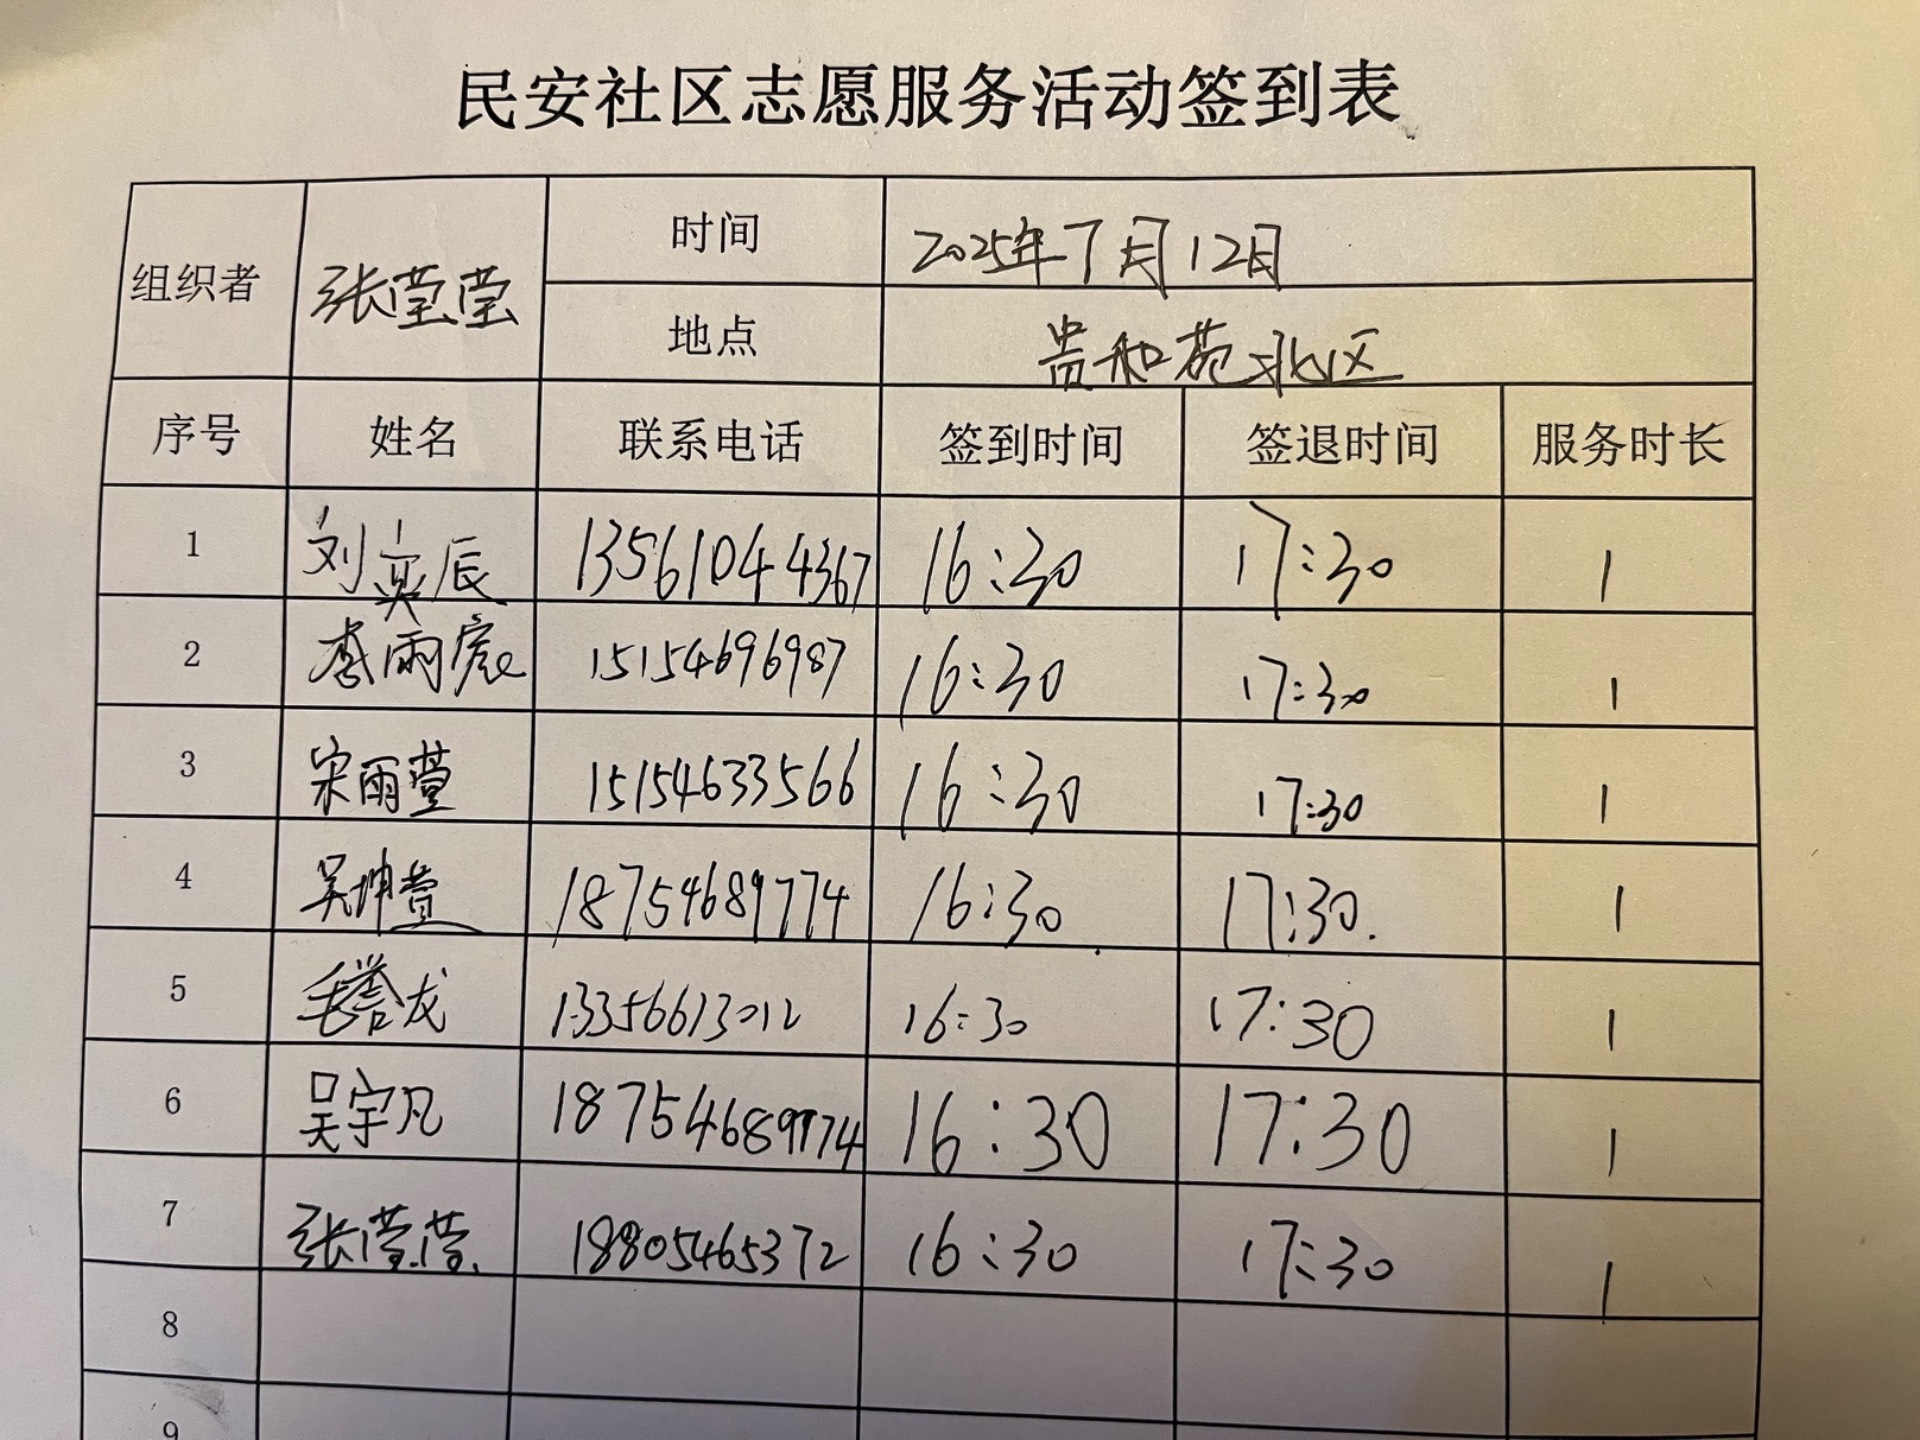 民安社区志愿服务活动签到表
组织者 张莹莹 时间 2025年7月12日
地点 贵和苑北区
序号 姓名 联系电话 签到时间 签退时间 服务时长
1 刘奕辰 13561044367 16:30 17:30 1
2 李雨宸 15154696987 16:30 17:30 1
3 宋雨萱 15154633566 16:30 17:30 1
4 吴坤萱 18754689774 16:30 17:30. 1
5 毛誉龙 13356613012 16:30 17:30 1
6 吴宇凡 18754689774 16:30 17:30 1
7 张莹莹 18805465372 16:30 17:30 1
8
9